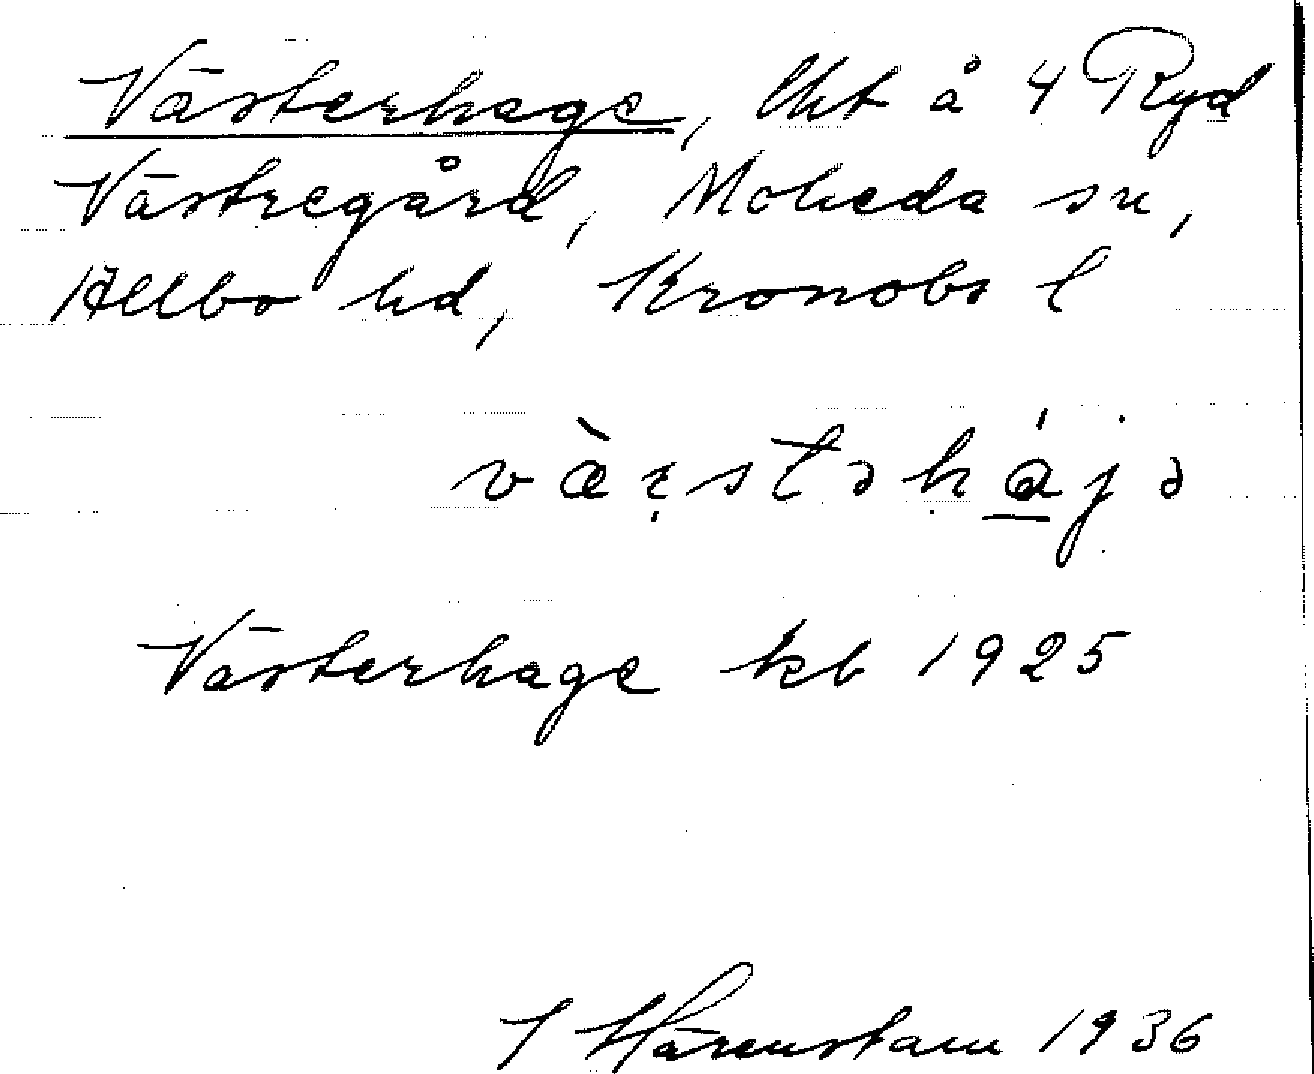 Västerhage, lht å 4 Ryd
Västregård, Moheda sn,
Allbo hd, Kronobs l
væ̀ɛ̣stəhájə
Västerhage kb 1925
J Härenstam 1936